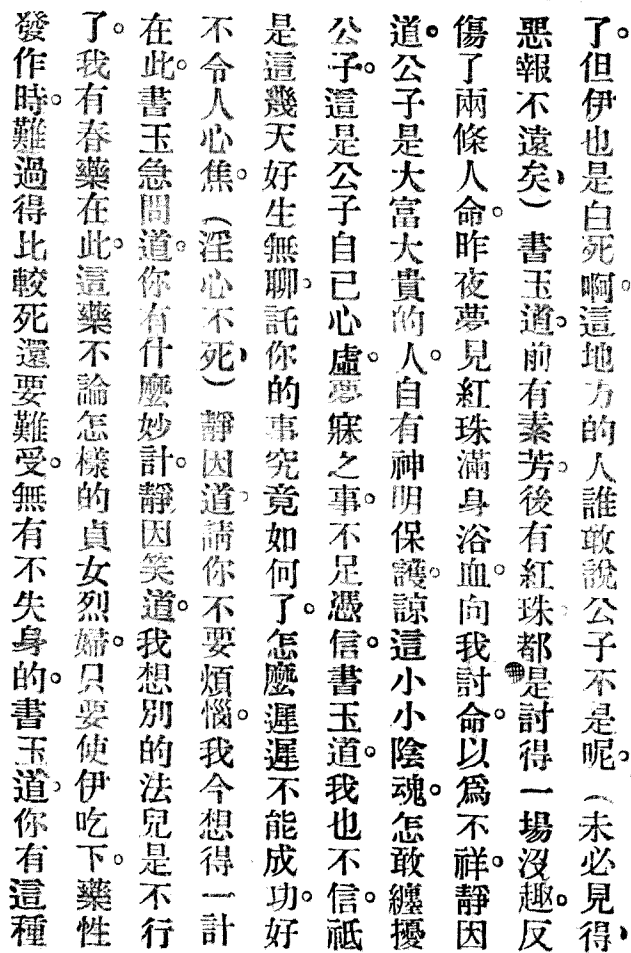 了。但伊也是白死啊。這地方的人誰敢說公子不是呢。（未必見得、
惡報不遠矣、）書玉道。前有素芳。後有紅珠。都是討得一場沒趣。反
傷了兩條人命。昨夜夢見紅珠滿身浴血。向我討命。以爲不祥。靜因
道。公子是大富大貴的人。自有神明保護。諒這小小陰魂。怎敢纏擾
公子。這是公子自己心虛。夢寐之事。不足憑信。書玉道。我也不信。祗
是這幾天好生無聊。託你的事究竟如何了。怎麼遲遲不能成功。好
不令人心焦。（淫心不死、）靜因道。請你不要煩惱。我今想得一計
在此。書玉急問道。你有什麼妙計。靜因笑道。我想別的法兒是不行
了。我有春藥在此。這藥不論怎樣的貞女烈婦。只要使伊吃下。藥性
發作時。難過得比較死還要難受。無有不失身的。書玉道。你有這種